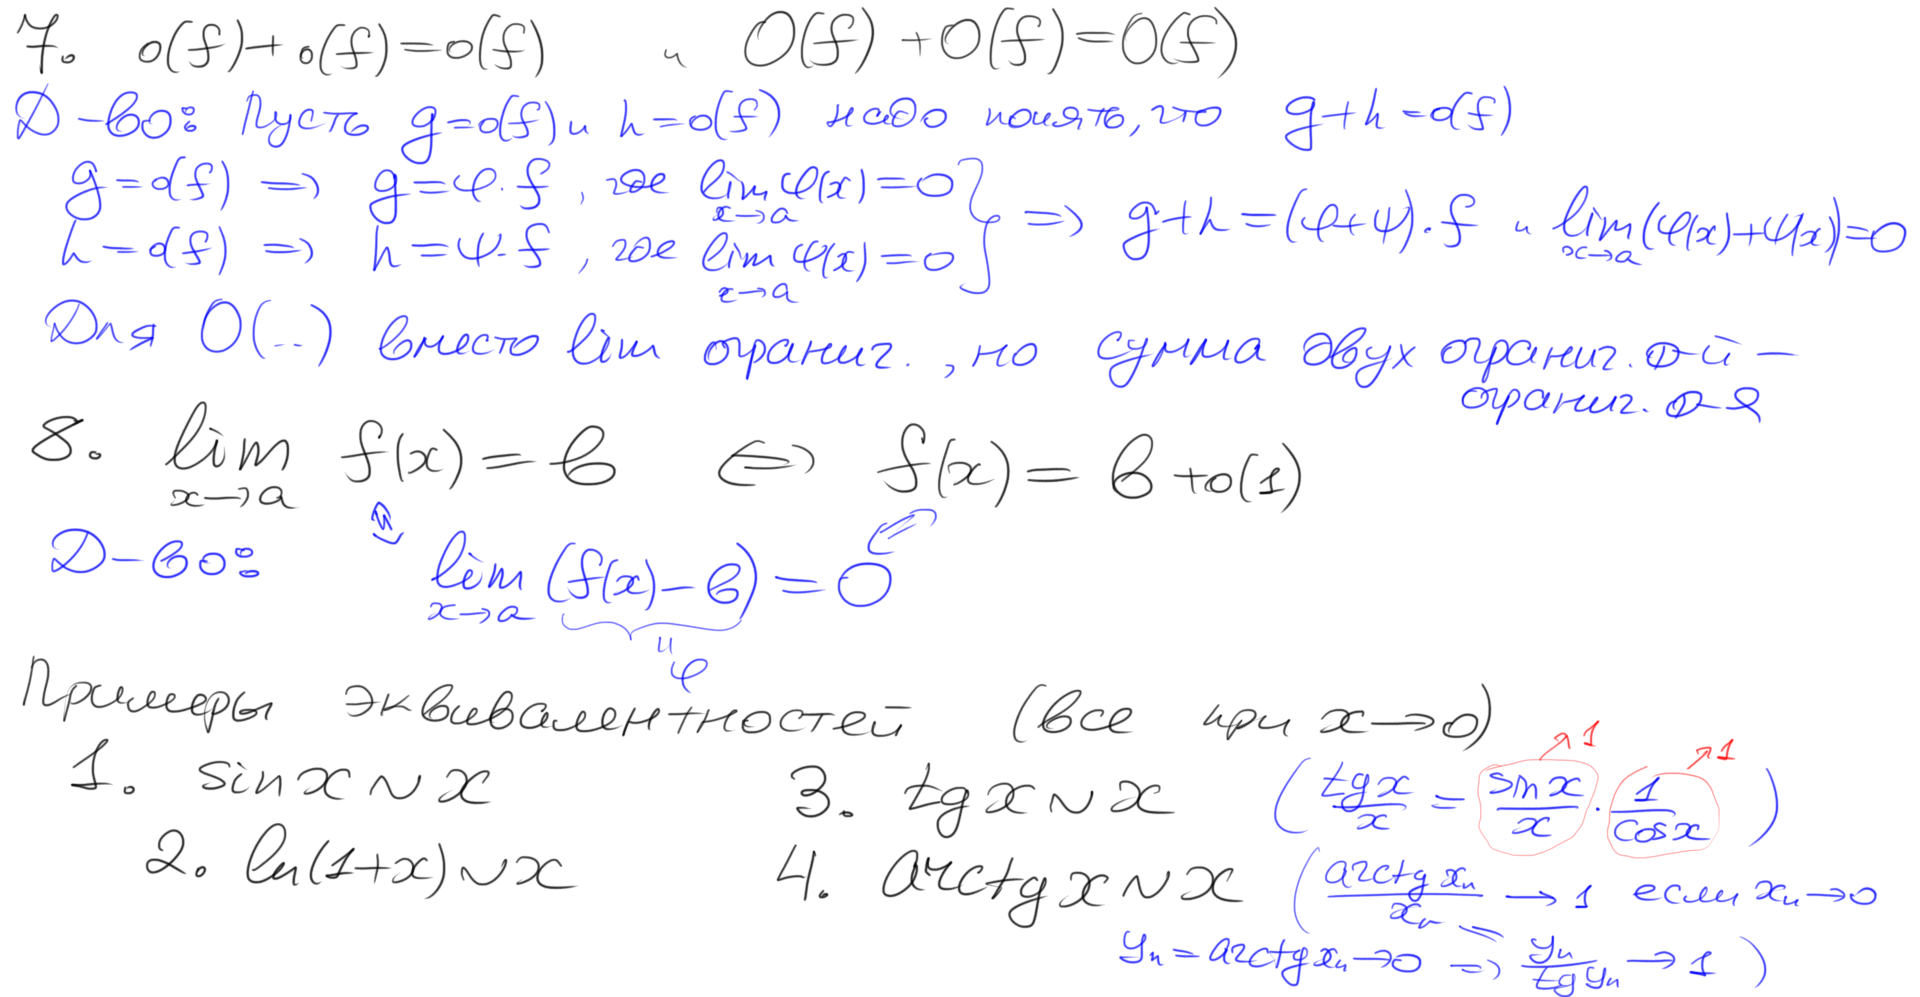 7. o(f)+o(f)=o(f) и O(f)+O(f)=O(f)
Д-во: Пусть g=o(f) и h=o(f) надо понять, что g+h=o(f)
g=o(f) ⇒ g=φ·f, где lim φ(x)=0
x→a
h=o(f) ⇒ h=ψ·f, где lim ψ(x)=0
x→a
} ⇒ g+h=(φ+ψ)·f и lim (φ(x)+ψ(x))=0
x→a
Для O(..) вместо lim огранич., но сумма двух огранич. ф-й –
огранич. ф-я
8. lim f(x)=b ⇔ f(x)=b+o(1)
x→a
⇕ ⇐
Д-во: lim (f(x)-b)=0
x→a
" φ
Примеры эквивалентностей (все при x→0)
1. sin x ~ x
2. ln(1+x) ~ x
3. tg x ~ x ( tg x / x = sin x / x · 1 / cos x )
→1 →1
4. arctg x ~ x ( arctg xₙ / xₙ → 1 если xₙ→0
=
yₙ = arctg xₙ→0 ⇒ yₙ / tg yₙ → 1 )